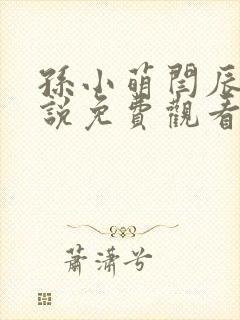 孫小萌閆辰
說免費觀看
蕭瀟兮